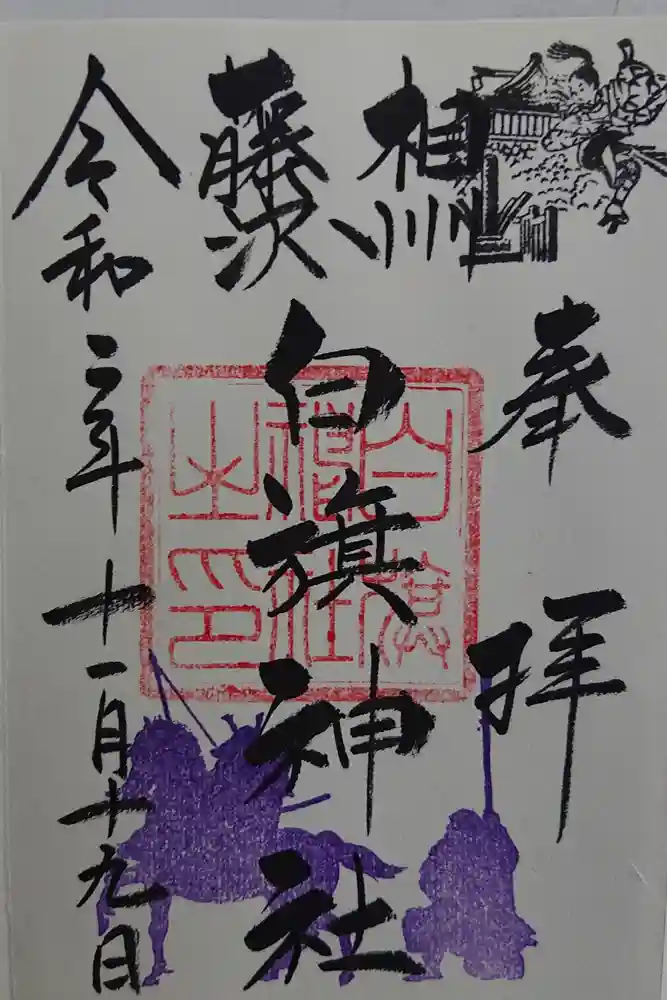 奉拝
相州
藤沢
白旗神社
令和二年十一月十九日
白旗
神社
之印